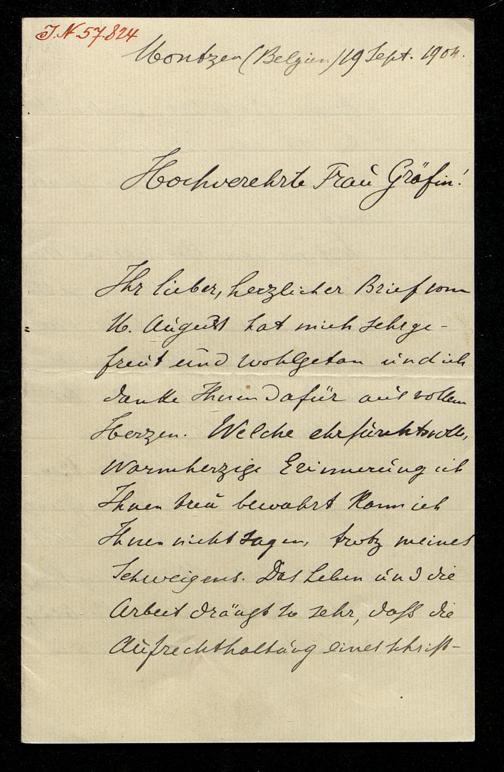 J.N 57.824
Montzen (Belgien) 19 Sept. 1904.
Hochverehrte Frau Gräfin!
Ihr lieber, herzlicher Brief vom
16. August hat mich sehr ge-
freut und wohlgetan und ich
danke Ihnen dafür aus vollem
Herzen. Welche ehrfurchtsvolle,
warmherzige Erinnerung ich
Ihnen treu bewahrt kann ich
Ihnen nicht sagen, trotz meines
Schweigens. Das Leben und die
Arbeit drängt so sehr, daß die
Aufrechthaltung eines schrift-